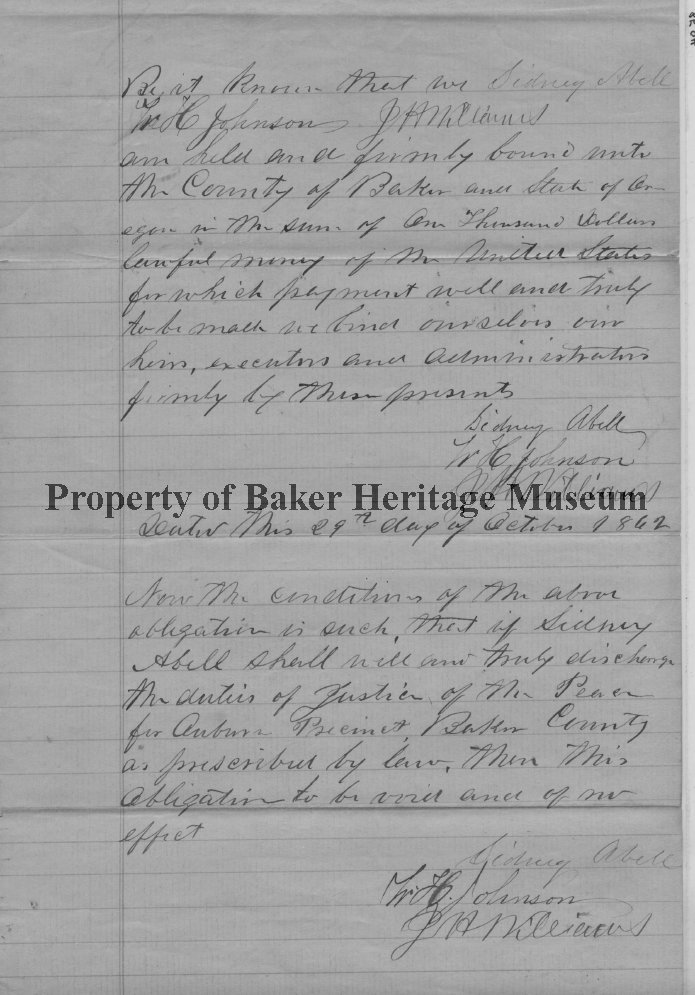 Be it known that we Sidney Abell
W. H. Johnson J H Williams
am held and firmly bound unto
the County of Baker and State of Or-
egon in the sum of One Thousand Dollars
lawful money of the United States
for which payment well and truly
to be made we bind ourselves our
heirs, executors and administrators
firmly by these presents
Sidney Abell
W H Johnson
J H Williams
Property of Baker Heritage Museum
Dated this 29th day of October 1862
Now the conditions of the above
obligation is such, that if Sidney
Abell shall well and truly discharge
the duties of Justice of the Peace
for Auburn Precinct, Baker County
as prescribed by law, then this
obligation to be void and of no
effect
Sidney Abell
W. H. Johnson
J H Williams